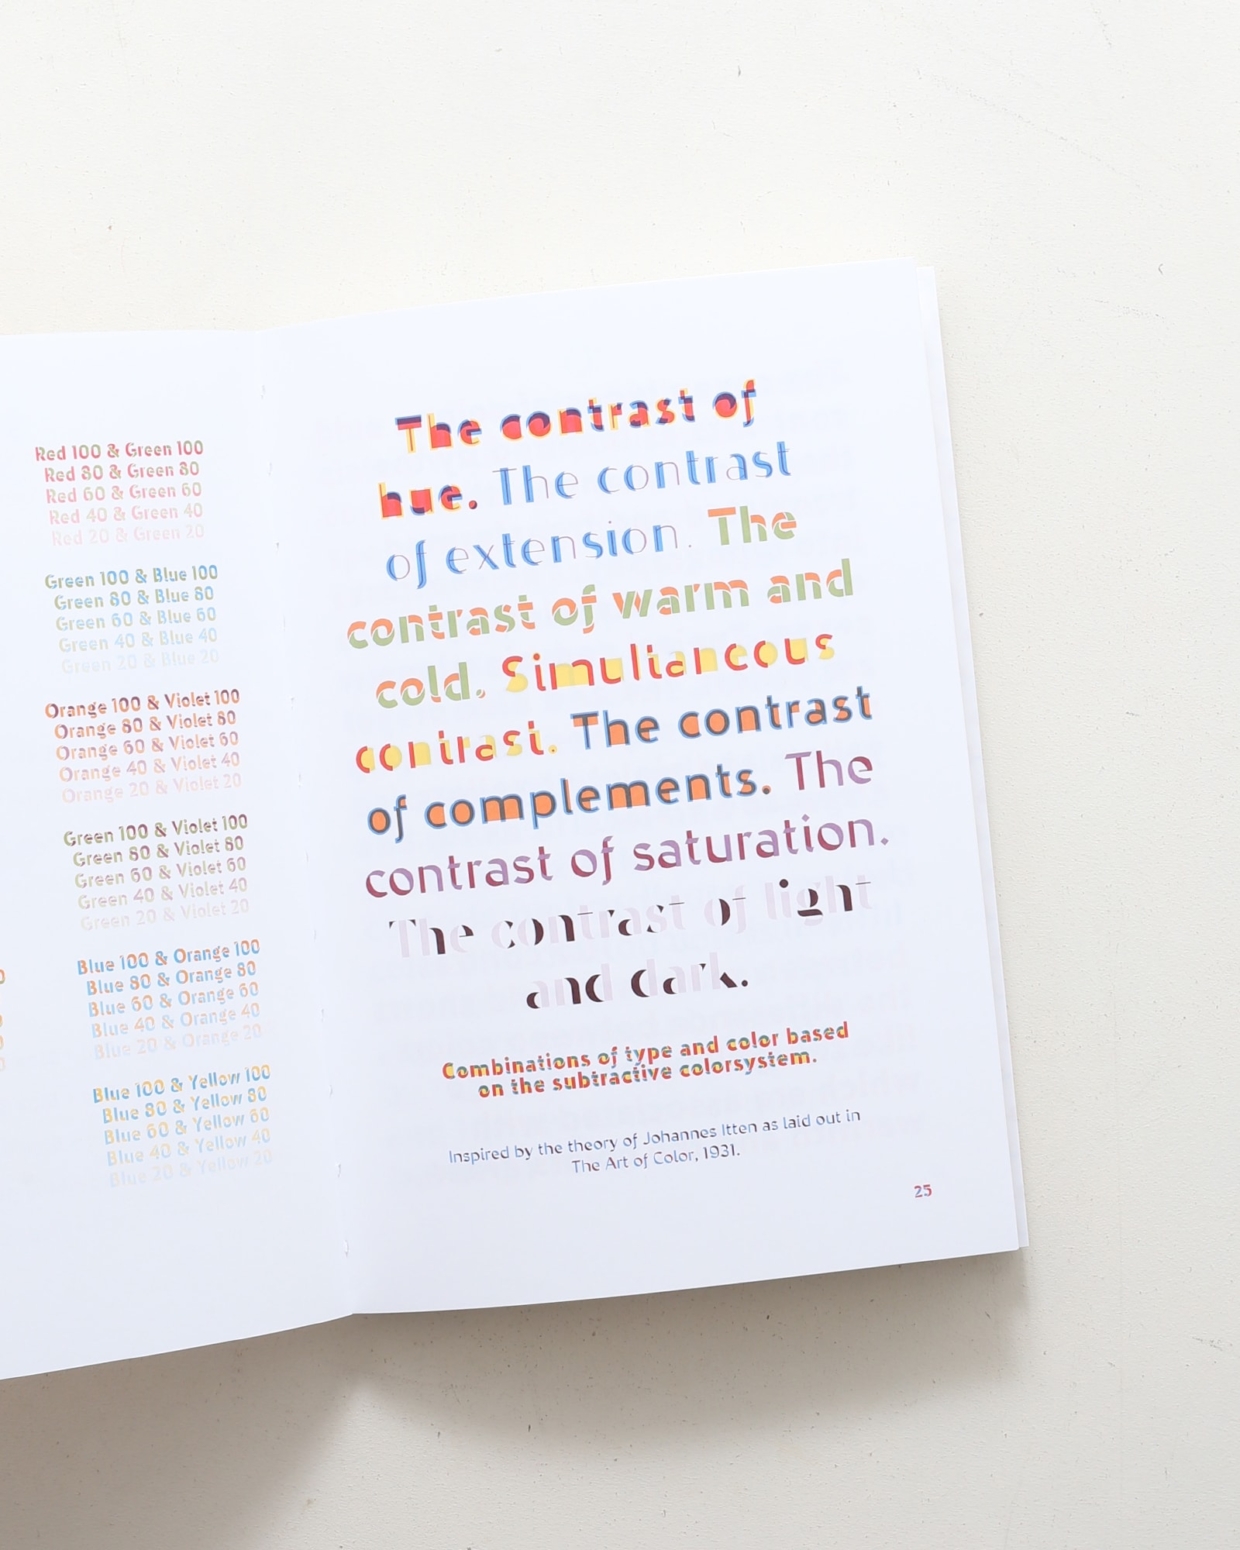 Red 100 & Green 100
Red 80 & Green 80
Red 60 & Green 60
Red 40 & Green 40
Red 20 & Green 20
Green 100 & Blue 100
Green 80 & Blue 80
Green 60 & Blue 60
Green 40 & Blue 40
Green 20 & Blue 20
Orange 100 & Violet 100
Orange 80 & Violet 80
Orange 60 & Violet 60
Orange 40 & Violet 40
Orange 20 & Violet 20
Green 100 & Violet 100
Green 80 & Violet 80
Green 60 & Violet 60
Green 40 & Violet 40
Green 20 & Violet 20
Blue 100 & Orange 100
Blue 80 & Orange 80
Blue 60 & Orange 60
Blue 40 & Orange 40
Blue 20 & Orange 20
Blue 100 & Yellow 100
Blue 80 & Yellow 80
Blue 60 & Yellow 60
Blue 40 & Yellow 40
Blue 20 & Yellow 20
The contrast of
hue. The contrast
of extension. The
contrast of warm and
cold. Simultaneous
contrast. The contrast
of complements. The
contrast of saturation.
The contrast of light
and dark.
Combinations of type and color based
on the subtractive colorsystem.
Inspired by the theory of Johannes Itten as laid out in
The Art of Color, 1931.
25